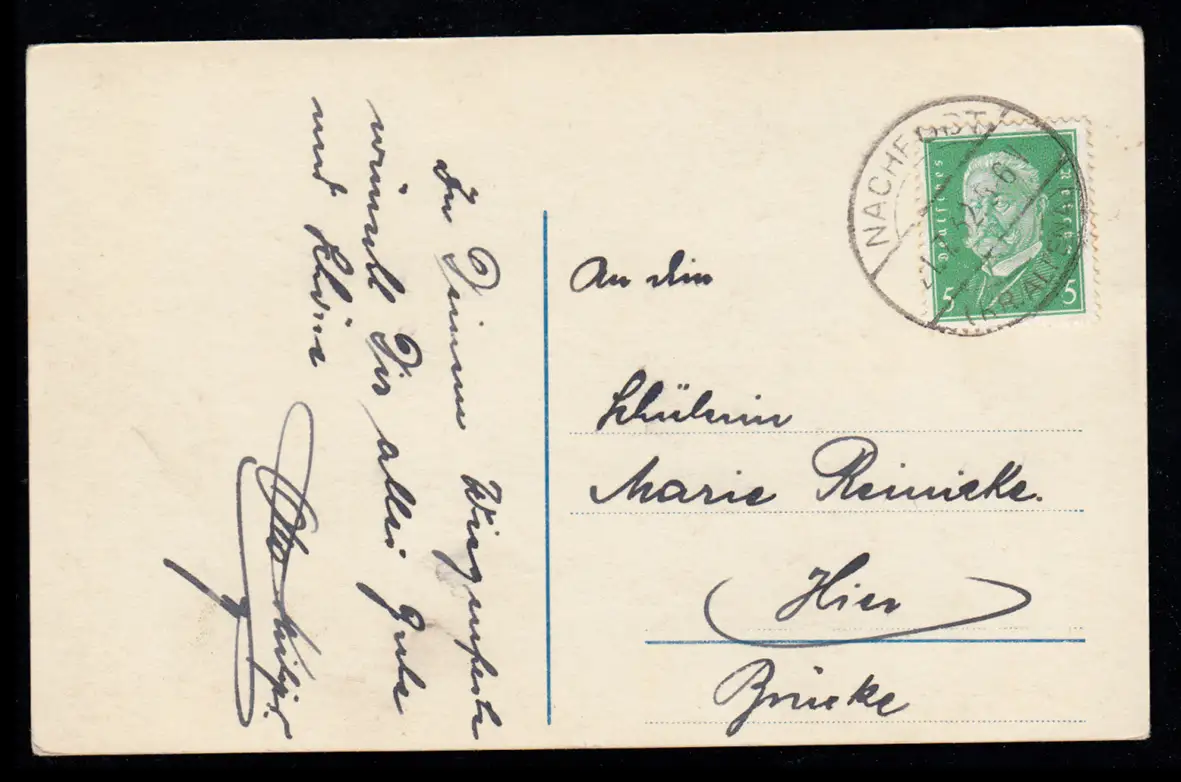 Zu Deinem Wiegenfeste
wünscht Dir alles Gute
und Schöne
Otto
NACHRODT
(KR. ALTENA)
Deutsches Reich
5 5
An die
Schülerin
Marie Reinicke.
Hier
Brücke